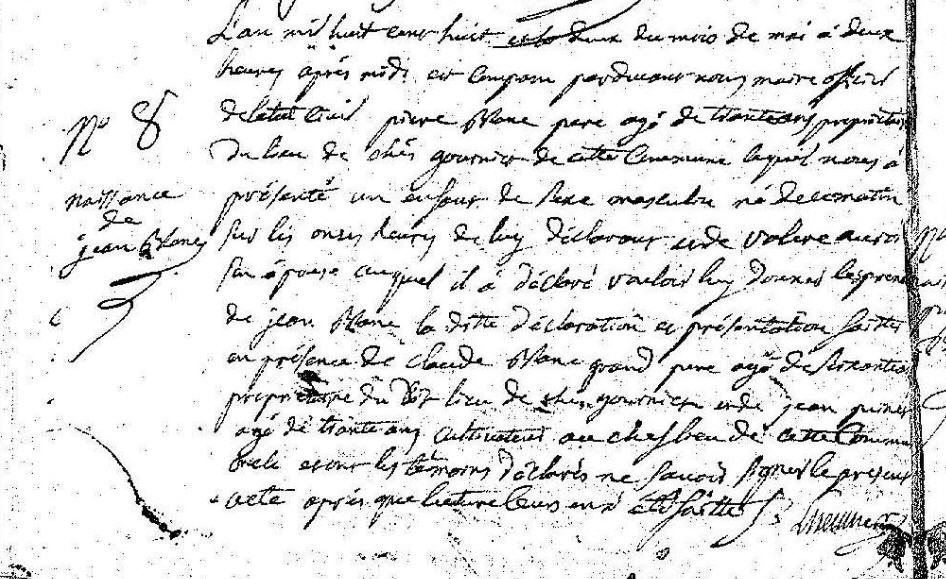 L'an mil huit cent huit et le deux du mois de mai à deux
heures après midi est comparu pardevant nous maire officier
de letat Civil pierre Blanc pere agé de trante ans propriétaire
du lieu de chés gournier de cette Commune lequel nous à
N° 8
présenté un enfant de sexe masculin né de ce matin
naissance
de
jean Blanc
sur les onze heures de luy déclarant et de
son épouse auquel il à déclaré vouloir luy donner les prenoms
de jean Blanc la ditte déclaration et présentation faittes
en présence de claude Blanc grand pere agé de soixante
propriétaire du dit lieu de chés gournier et de jean
agé de trante ans cultivateur au chef lieu de cette Commune
et ont les témoins déclarés ne savoir signer le présent
acte après que lecture leurs en à eté faitte